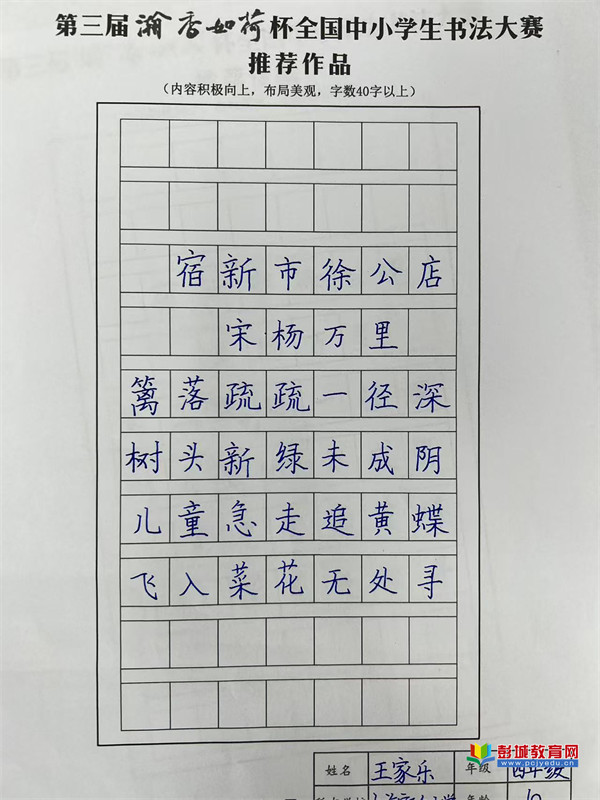 第三届瀚香如荷杯全国中小学生书法大赛
推荐作品
（内容积极向上，布局美观，字数40字以上）
宿新市徐公店
宋杨万里
篱落疏疏一径深
树头新绿未成阴
儿童急走追黄蝶
飞入菜花无处寻
姓名 王家乐 年级 四年级
彭城教育网
www.pcjyedu.cn